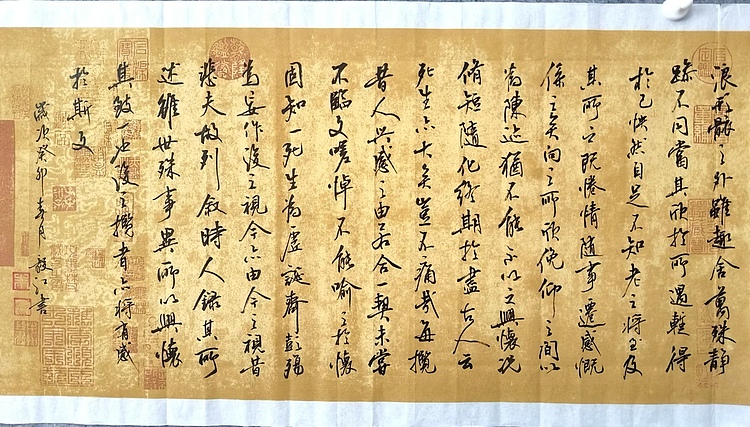 浪形骸之外雖趣舍萬殊靜
躁不同當其欣於所遇暫得
於己怏然自足不知老之將至及
其所之既惓情隨事遷感慨
係之矣向之所欣俛仰之間以
為陳迹猶不能不以之興懷況
脩短隨化終期於盡古人云
死生亦大矣豈不痛哉每攬
昔人興感之由若合一契未嘗
不臨文嗟悼不能喻之於懷
固知一死生為虛誕齊彭殤
為妄作後之視今亦由今之視昔
悲夫故列敘時人錄其所
述雖世殊事異所以興懷
其致一也後之攬者亦將有感
於斯文
歲次癸卯春月江書